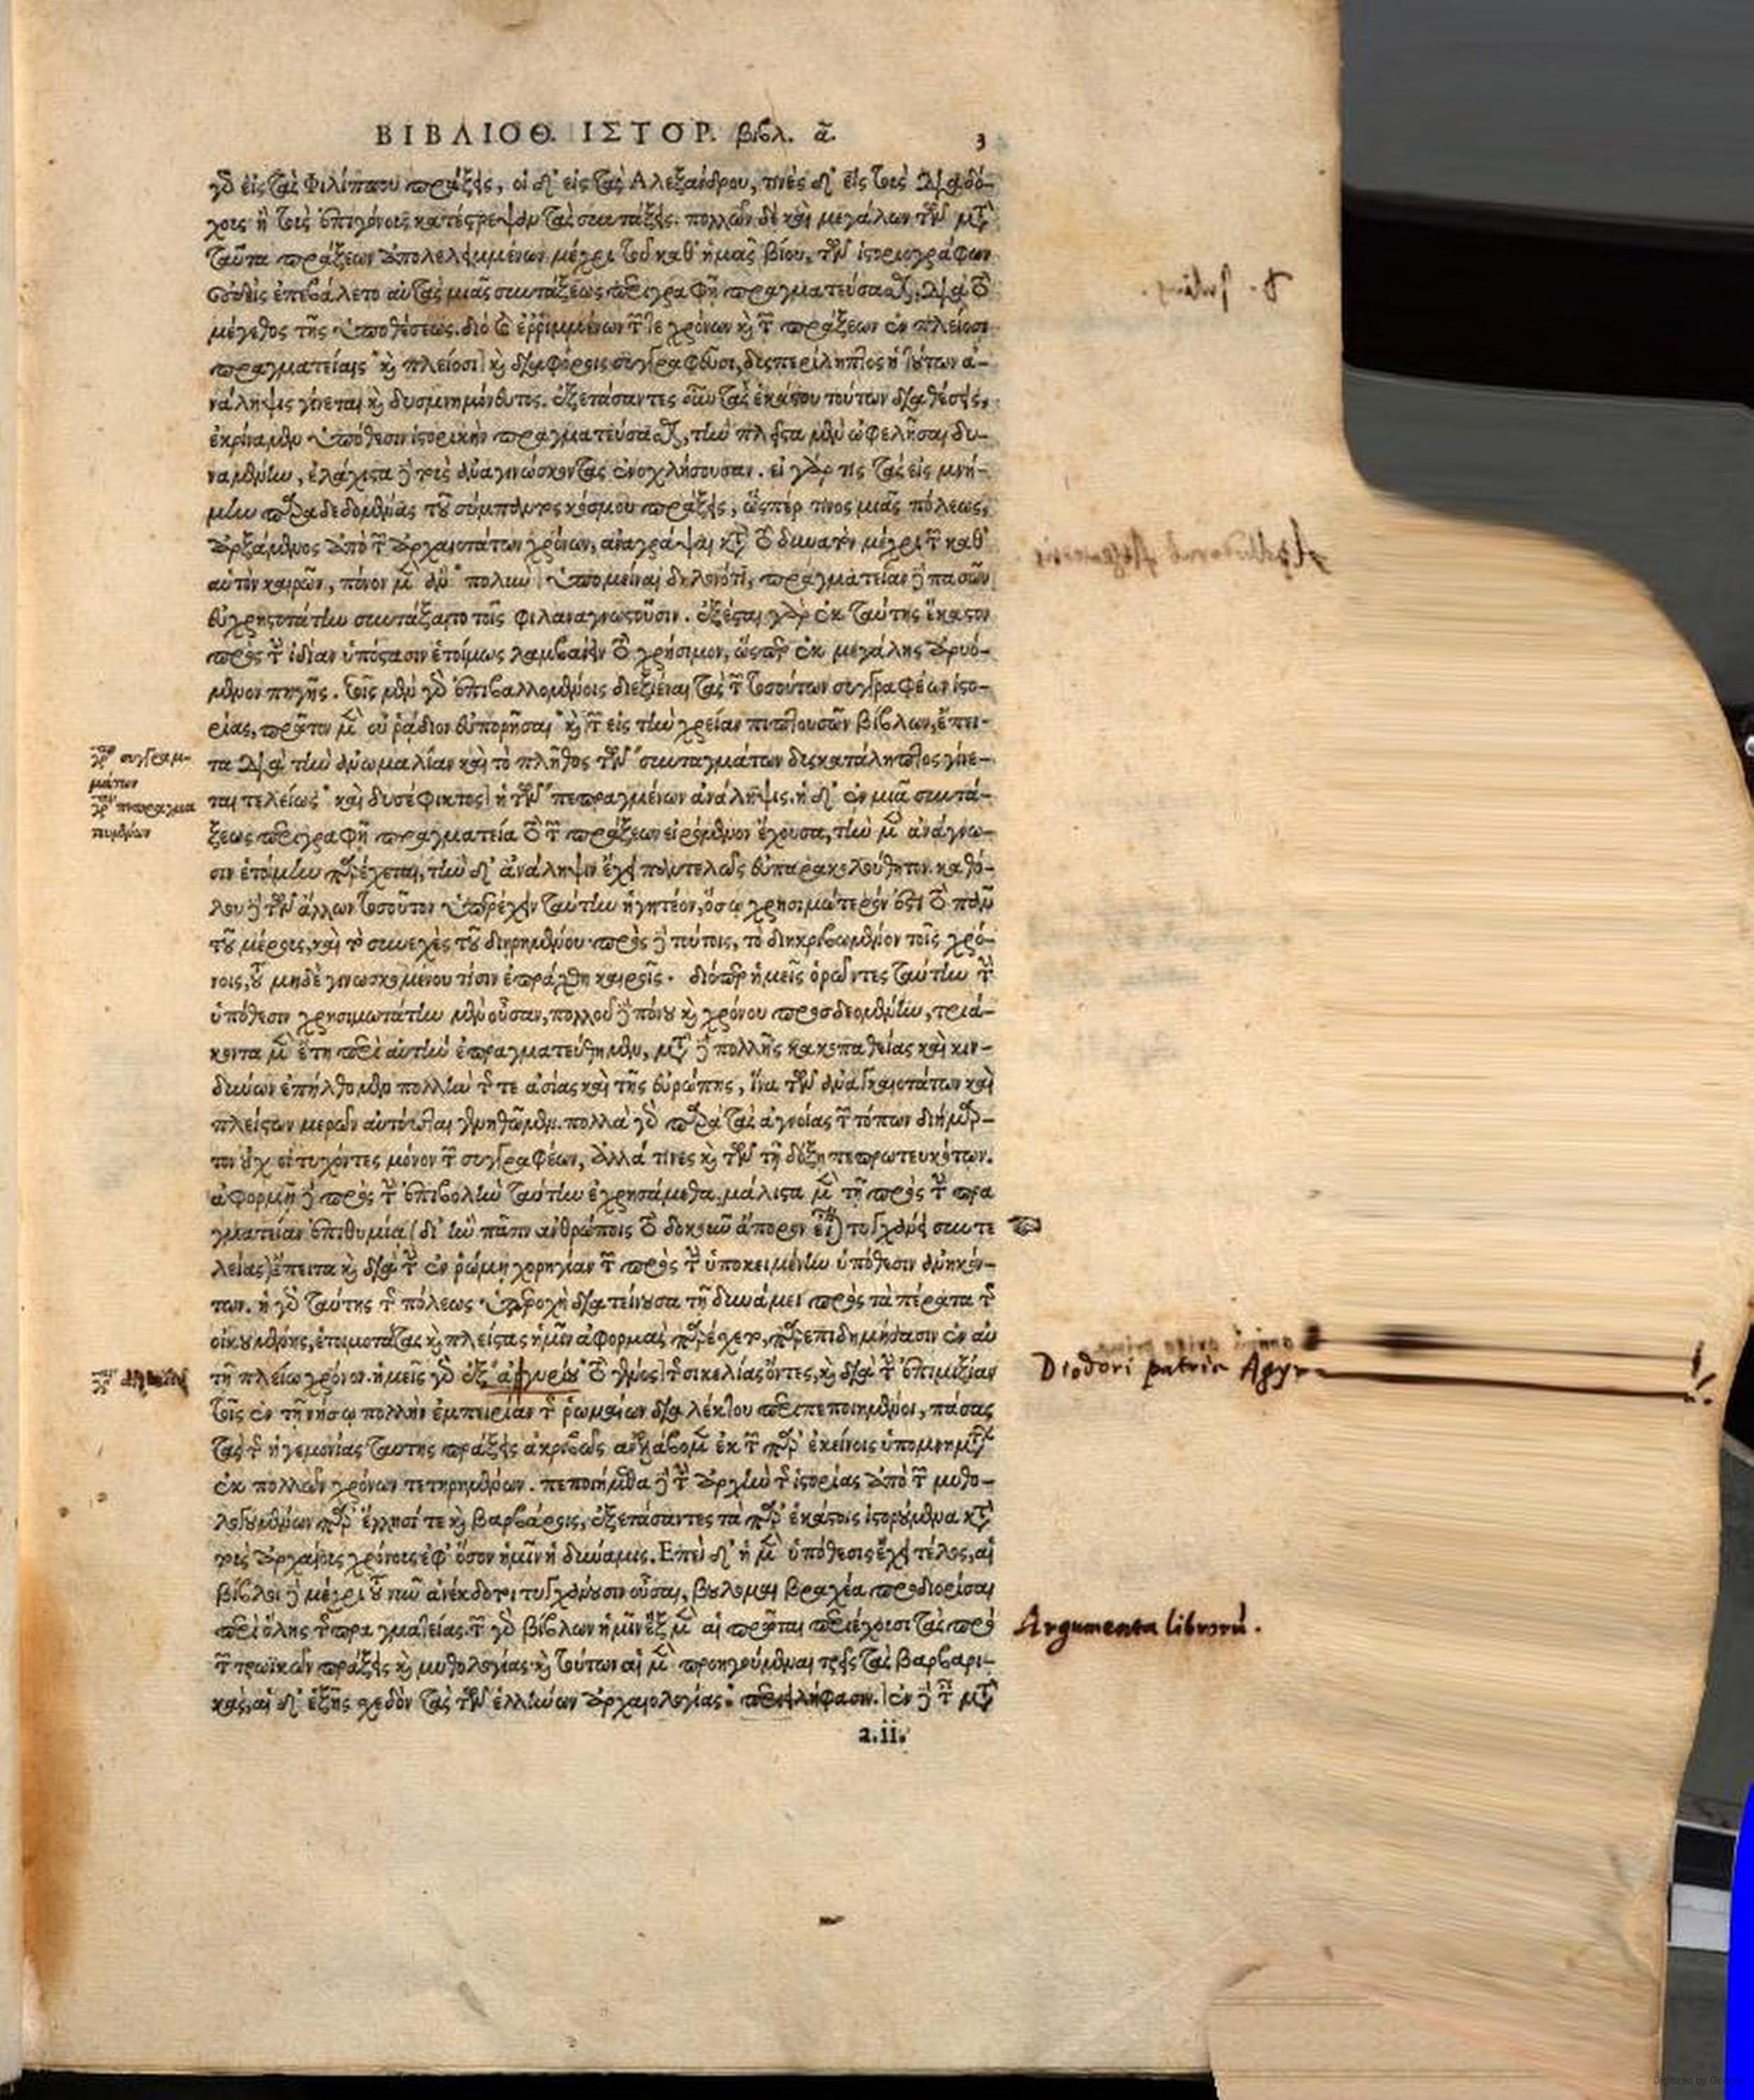 ΒΙΒΛΙΟΘ. ΙΣΤΟΡ. βιβλ. α. 3
γὸ εἰς τὰς Φιλίππου πράξεις, οἱ δ' εἰς τὰς Ἀλεξάνδρου, τινὲς δ' εἰς τοὺς διαδό-
χοις ἢ τοὺς ἐπιγόνοις κατέστρεψαν τὰς συντάξεις. πολλῶν δὲ καὶ μεγάλων τῶν μετὰ
ταῦτα πράξεων ἀπολελειμμένων μέχρι τοῦ καθ' ἡμᾶς βίου, τῶν ἱστοριογράφων
οὐθεὶς ἐπεβάλετο αὐτὰς μιᾶς συντάξεως περιγραφῇ πραγματεύσασθαι, διὰ τὸ
μέγεθος τῆς ὑποθέσεως. διὸ καὶ ἐρριμμένων τῶν τε χρόνων καὶ τῶν πράξεων ἐν πλείοσι
πραγματείαις καὶ πλείοσι] καὶ διαφόροις συγγραφεῦσι, δυσπερίληπτος ἡ τούτων ἀ-
νάληψις γίνεται καὶ δυσμνημόνευτος. ἐξετάσαντες οὖν τὰς ἑκάστου τούτων διαθέσεις,
ἐκρίναμεν ὑπόθεσιν ἱστορικὴν πραγματεύσασθαι, τὴν πλεῖστα μὲν ὠφελῆσαι δυ-
ναμένην, ἐλάχιστα δὲ τοὺς ἀναγινώσκοντας ἐνοχλήσουσαν. εἰ γάρ τις τὰς εἰς μνή-
μην παραδεδομένας τοῦ σύμπαντος κόσμου πράξεις, ὥσπέρ τινος μιᾶς πόλεως,
ἀρξάμενος ἀπὸ τῶν ἀρχαιοτάτων χρόνων, ἀναγράψαι κατὰ τὸ δυνατὸν μέχρι τῶν καθ'
αὑτὸν καιρῶν, πόνον μὲν ἂν πολὺν] ὑπομεῖναι δηλονότι, πραγματείαν δὲ πασῶν
εὐχρηστοτάτην συντάξαιτο τοῖς φιλαναγνωστοῦσιν. ἐξέσται γὰρ ἐκ ταύτης ἕκαστον
πρὸς τὴν ἰδίαν ὑπόστασιν ἑτοίμως λαμβάνειν τὸ χρήσιμον, ὥσπερ ἐκ μεγάλης ἀρυό-
μενον πηγῆς. τοῖς μὲν γὸ ἐπιβαλλομένοις διεξιέναι τὰς τῶν τοσούτων συγγραφέων ἱστο-
ρίας, πρῶτον μὲν οὐ ῥᾴδιον εὐπορῆσαι καὶ τῶν εἰς τὴν χρείαν πιπτουσῶν βίβλων, ἔπει-
τα διὰ τὴν ἀνωμαλίαν καὶ τὸ πλῆθος τῶν συνταγμάτων δυσκατάληπτος γίνε-
ται τελείως καὶ δυσέφικτος] ἡ τῶν πεπραγμένων ἀνάληψις. ἡ δ' ἐν μιᾷ συντά-
ξεως περιγραφῇ πραγματεία τὸ τῶν πράξεων εἰρόμενον ἔχουσα, τὴν μὲν ἀνάγνω-
σιν ἑτοίμην παρέχεται, τὴν δ' ἀνάληψιν ἔχει παντελῶς εὐπαρακολούθητον. καθό-
λου δὲ τῶν ἄλλων τοσοῦτον ὑπερέχειν ταύτην ἡγητέον, ὅσῳ χρησιμώτερόν ἐστι τὸ πᾶν
τοῦ μέρους, καὶ τὸ συνεχὲς τοῦ διῃρημένου· πρὸς δὲ τούτοις, τὸ διηκριβωμένον τοῖς χρό-
νοις, τοῦ μηδὲ γινωσκομένου τίσιν ἐπράχθη καιροῖς. διόπερ ἡμεῖς ὁρῶντες ταύτην τὴν
ὑπόθεσιν χρησιμωτάτην μὲν οὖσαν, πολλοῦ δὲ πόνου καὶ χρόνου προσδεομένην, τριά-
κοντα μὲν ἔτη περὶ αὐτὴν ἐπραγματεύθημεν, μετὰ δὲ πολλῆς κακοπαθείας καὶ κιν-
δύνων ἐπήλθομεν πολλὴν τῆς τε ἀσίας καὶ τῆς εὐρώπης, ἵνα τῶν ἀναγκαιοτάτων καὶ
πλείστων μερῶν αὐτόπται γενηθῶμεν. πολλὰ γὸ παρὰ τὰς ἀγνοίας τῶν τόπων διήμαρ-
τον οὐχ οἱ τυχόντες μόνον τῶν συγγραφέων, ἀλλά τινες καὶ τῶν τῇ δόξῃ πεπρωτευκότων.
ἀφορμῇ δὲ πρὸς τὴν ἐπιβολὴν ταύτην ἐχρησάμεθα, μάλιστα μὲν τῇ πρὸς τὴν πρα
γματείαν ἐπιθυμίᾳ (δι' ἣν πᾶσιν ἀνθρώποις τὸ δοκοῦν ἄπορον εἶναι) τυγχάνει συντε
λείας) ἔπειτα καὶ διὰ τὴν ἐν ῥώμῃ χορηγίαν τῶν πρὸς τὴν ὑποκειμένην ὑπόθεσιν ἀνηκόν-
των. ἡ γὸ ταύτης τῆς πόλεως ὑπεροχὴ διατείνουσα τῇ δυνάμει πρὸς τὰ πέρατα τῆς
οἰκουμένης, ἑτοιμοτάτας καὶ πλείστας ἡμῖν ἀφορμὰς παρέσχετο, παρεπιδημήσασιν ἐν αὐ
τῇ πλείω χρόνον. ἡμεῖς γὸ ἐξ ἀργυρίου τὸ γένος] τῆς σικελίας ὄντες, καὶ διὰ τὴν ἐπιμιξίαν
τοῖς ἐν τῇ νήσῳ πολλὴν ἐμπειρίαν τῆς ῥωμαίων διαλέκτου περιπεποιημένοι, πάσας
τὰς τῆς ἡγεμονίας ταύτης πράξεις ἀκριβῶς ἀνελάβομεν ἐκ τῶν παρ' ἐκείνοις ὑπομνημάτων
ἐκ πολλῶν χρόνων τετηρημένων. πεποιήμεθα δὲ τὴν ἀρχὴν τῆς ἱστορίας ἀπὸ τῶν μυθο-
λογουμένων παρ' ἕλλησί τε καὶ βαρβάροις, ἐξετάσαντες τὰ παρ' ἑκάστοις ἱστορούμενα κατὰ
τοὺς ἀρχαίοις χρόνοις ἐφ' ὅσον ἡμῖν ἡ δύναμις. Ἐπεὶ δ' ἡ μὲν ὑπόθεσις ἔχει τέλος, αἱ
βίβλοι δὲ μέχρι τοῦ νῦν ἀνέκδοτοι τυγχάνουσιν οὖσαι, βούλομαι βραχέα προδιορίσαι
περὶ ὅλης τῆς πραγματείας. τῶν γὸ βίβλων ἡμῖν ἓξ μὲν αἱ πρῶται περιέχουσι τὰς πρὸ
τῶν τρωϊκῶν πράξεις καὶ μυθολογίας· καὶ τούτων αἱ μὲν προηγούμεναι τρεῖς τὰς βαρβαρι-
κάς, αἱ δ' ἑξῆς σχεδὸν τὰς τῶν ἑλλήνων ἀρχαιολογίας· περιειλήφασιν.] ἐν δὲ τῶν μετὰ
a.ii.
γρ συγγραμ-
μάτων
γρ πεπραγμα
τευμένων
Diodori patria Agyr
Argumenta librorū.